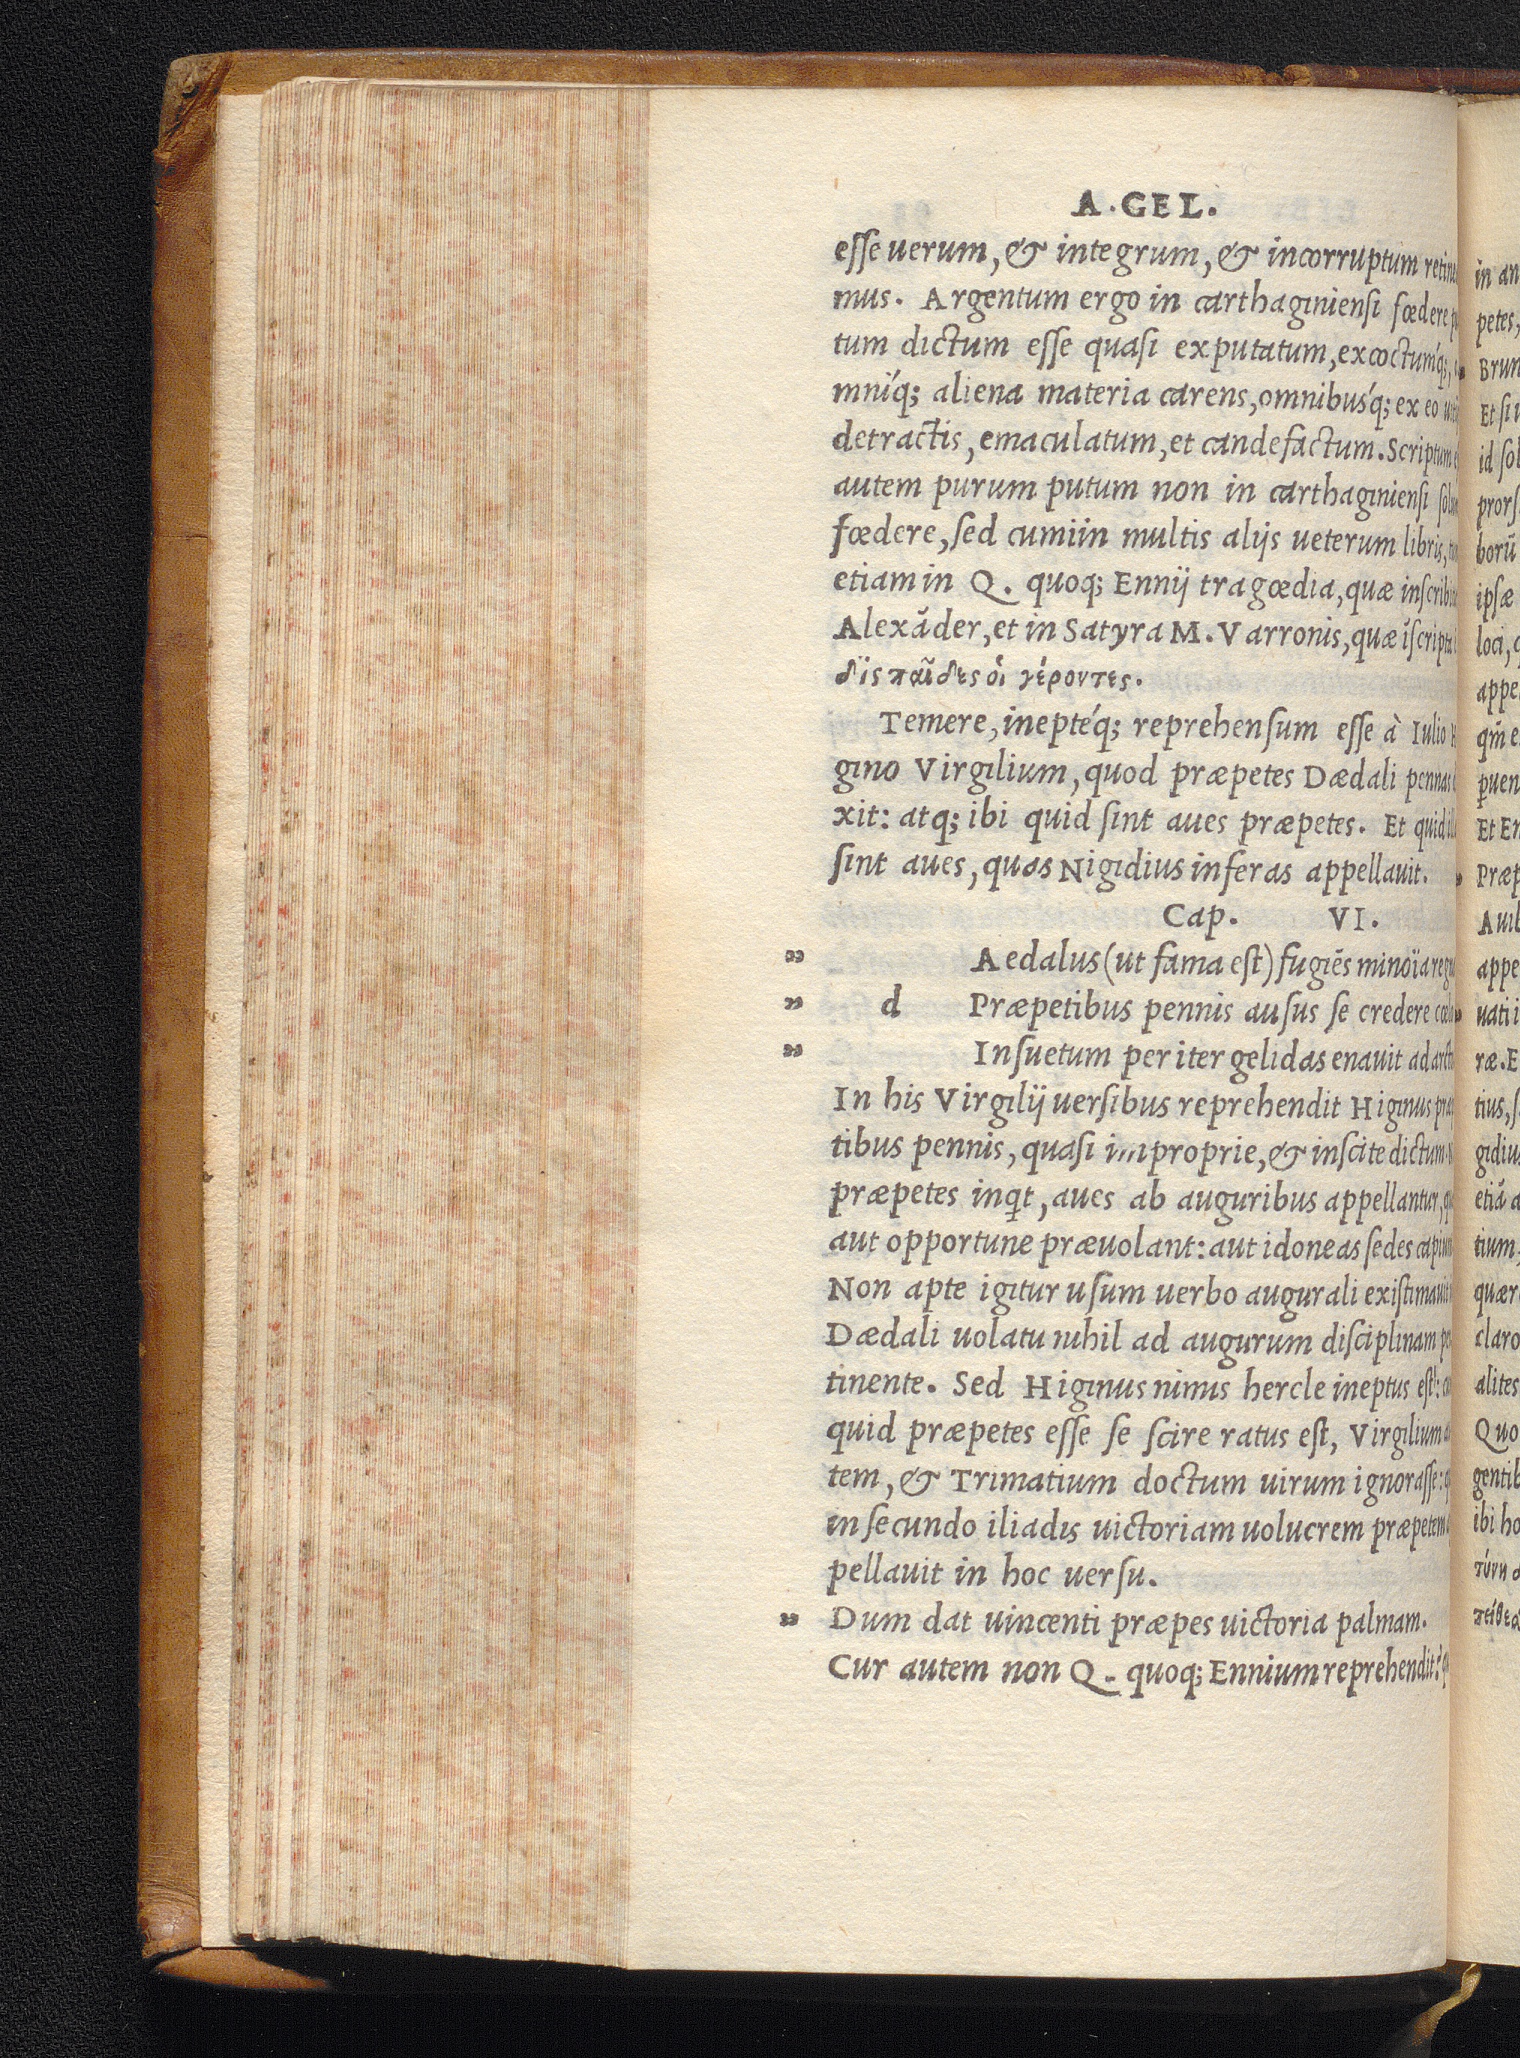 A. GEL.
esse uerum, & integrum, & incorruptum
mus. Argentum ergo in carthaginiensi fœdere
tum dictum esse quasi exputatum, excoctumq́;,
mniq́; aliena materia carens, omnibusq́; ex eo
detractis, emaculatum, et candefactum. Scriptum
autem purum putum non in carthaginiensi
fœdere, sed cumiin multis alijs ueterum libris,
etiam in Q. quoq; Ennij tragœdia, quæ
Alexāder, et in Satyra M. Varronis, quæ
δὶς παῖδες οἱ γέροντες.
Temere, ineptéq; reprehensum esse à Iulio
gino Virgilium, quod præpetes Dædali pennas
xit: atq; ibi quid sint aues præpetes. Et quid
sint aues, quas Nigidius inferas appellauit.
Cap. VI.
„ Aedalus (ut fama est) fugiēs minoïa
„ d Præpetibus pennis ausus se credere
„ Insuetum per iter gelidas enauit ad
In his Virgilij uersibus reprehendit Higinus
tibus pennis, quasi improprie, & inscite dictum.
præpetes inqt, aues ab auguribus appellantur,
aut opportune præuolant: aut idoneas sedes
Non apte igitur usum uerbo augurali
Dædali uolatu nihil ad augurum disciplinam
tinente. Sed Higinus nimis hercle ineptus est:
quid præpetes esse se scire ratus est, Virgilium
tem, & Trimatium doctum uirum ignorasse:
in secundo iliadis uictoriam uolucrem præpetem
pellauit in hoc uersu.
„ Dum dat uincenti præpes uictoria palmam.
Cur autem non Q. quoq; Ennium reprehendit?
in
petes,
Brun
Et si
id
boru̅
ipsæ
loci,
appe
Et
appe
uati
ræ. E
tius,
gidius
etiā
tium,
quær
claro
alites
Quo
gentib
ibi